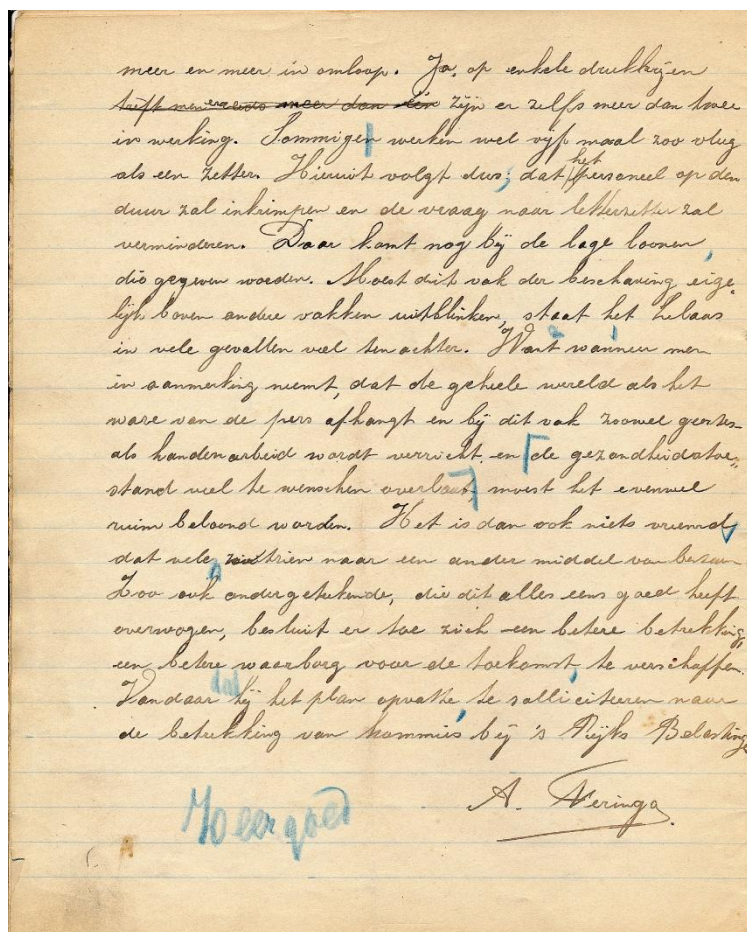 meer en meer in omloop. Ja, op enkele drukkerijen
treft men er reeds meer dan één zijn er zelfs meer dan twee
in werking. Sommigen werken wel vijf maal zoo vlug
als een zetter. Hieruit volgt dus, dat het personeel op den
duur zal inkrimpen en de vraag naar letterzetter zal
verminderen. Daar komt nog bij de lage loonen,
die gegeven worden. Moest dit vak der beschaving eige-
lijk boven andere vakken uitblinken, staat het helaas
in vele gevallen veel ten achter. Want wanneer men
in aanmerking neemt, dat de geheele wereld als het
ware van de pers afhangt en bij dit vak zoowel geestes-
als handenarbeid wordt verricht, en de gezondheidstoe-
stand veel te wenschen overlaat, moest het evenwel
ruim beloond worden. Het is dan ook niets vreemd,
dat vele zien naar een ander middel van bestaan
Zoo ook ondergetekende, die dit alles eens goed heeft
overwogen, besluit er toe zich een betere betrekking,
een betere waarborg voor de toekomst, te verschaffen.
Vandaar dat hij het plan opvatte, te solliciteeren naar
de betrekking van kommies bij 's Rijks Belasting
A. Feringa.
Zeer goed